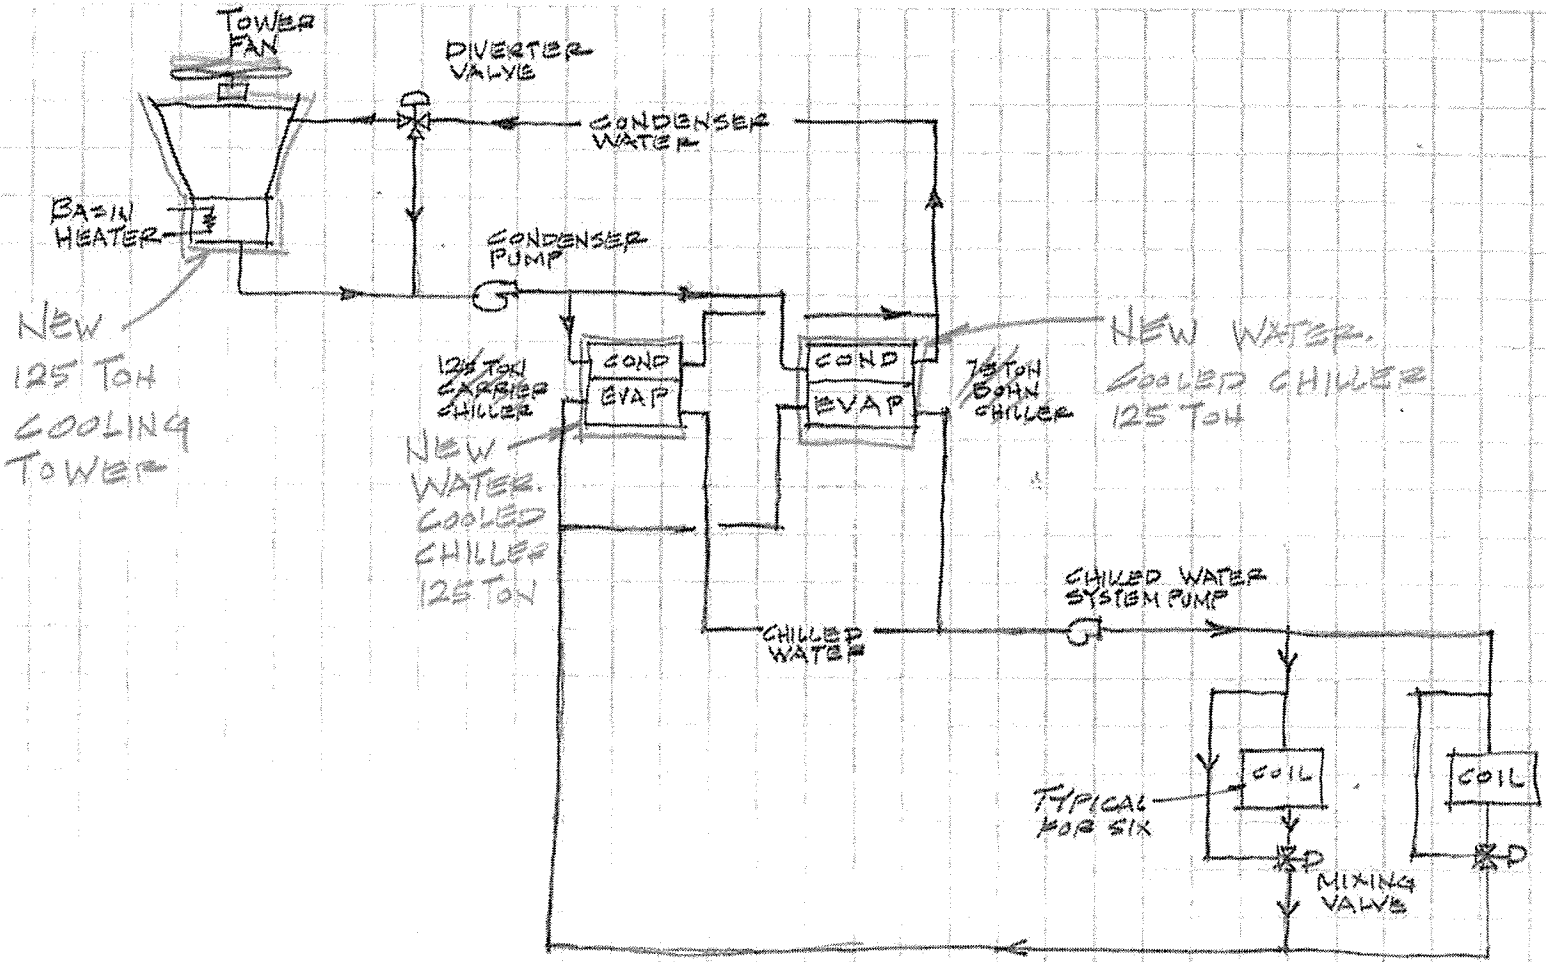 TOWER
FAN
DIVERTER
VALVE
CONDENSER
WATER
BASIN
HEATER
CONDENSER
PUMP
NEW
125 TON
COOLING
TOWER
125 TON
CARRIER
CHILLER
COND
EVAP
COND
EVAP
75 TON
BOHN
CHILLER
NEW WATER.
COOLED CHILLER
125 TON
NEW
WATER.
COOLED
CHILLER
125 TON
CHILLED WATER
SYSTEM PUMP
CHILLED
WATER
COIL
COIL
TYPICAL
FOR SIX
MIXING
VALVE